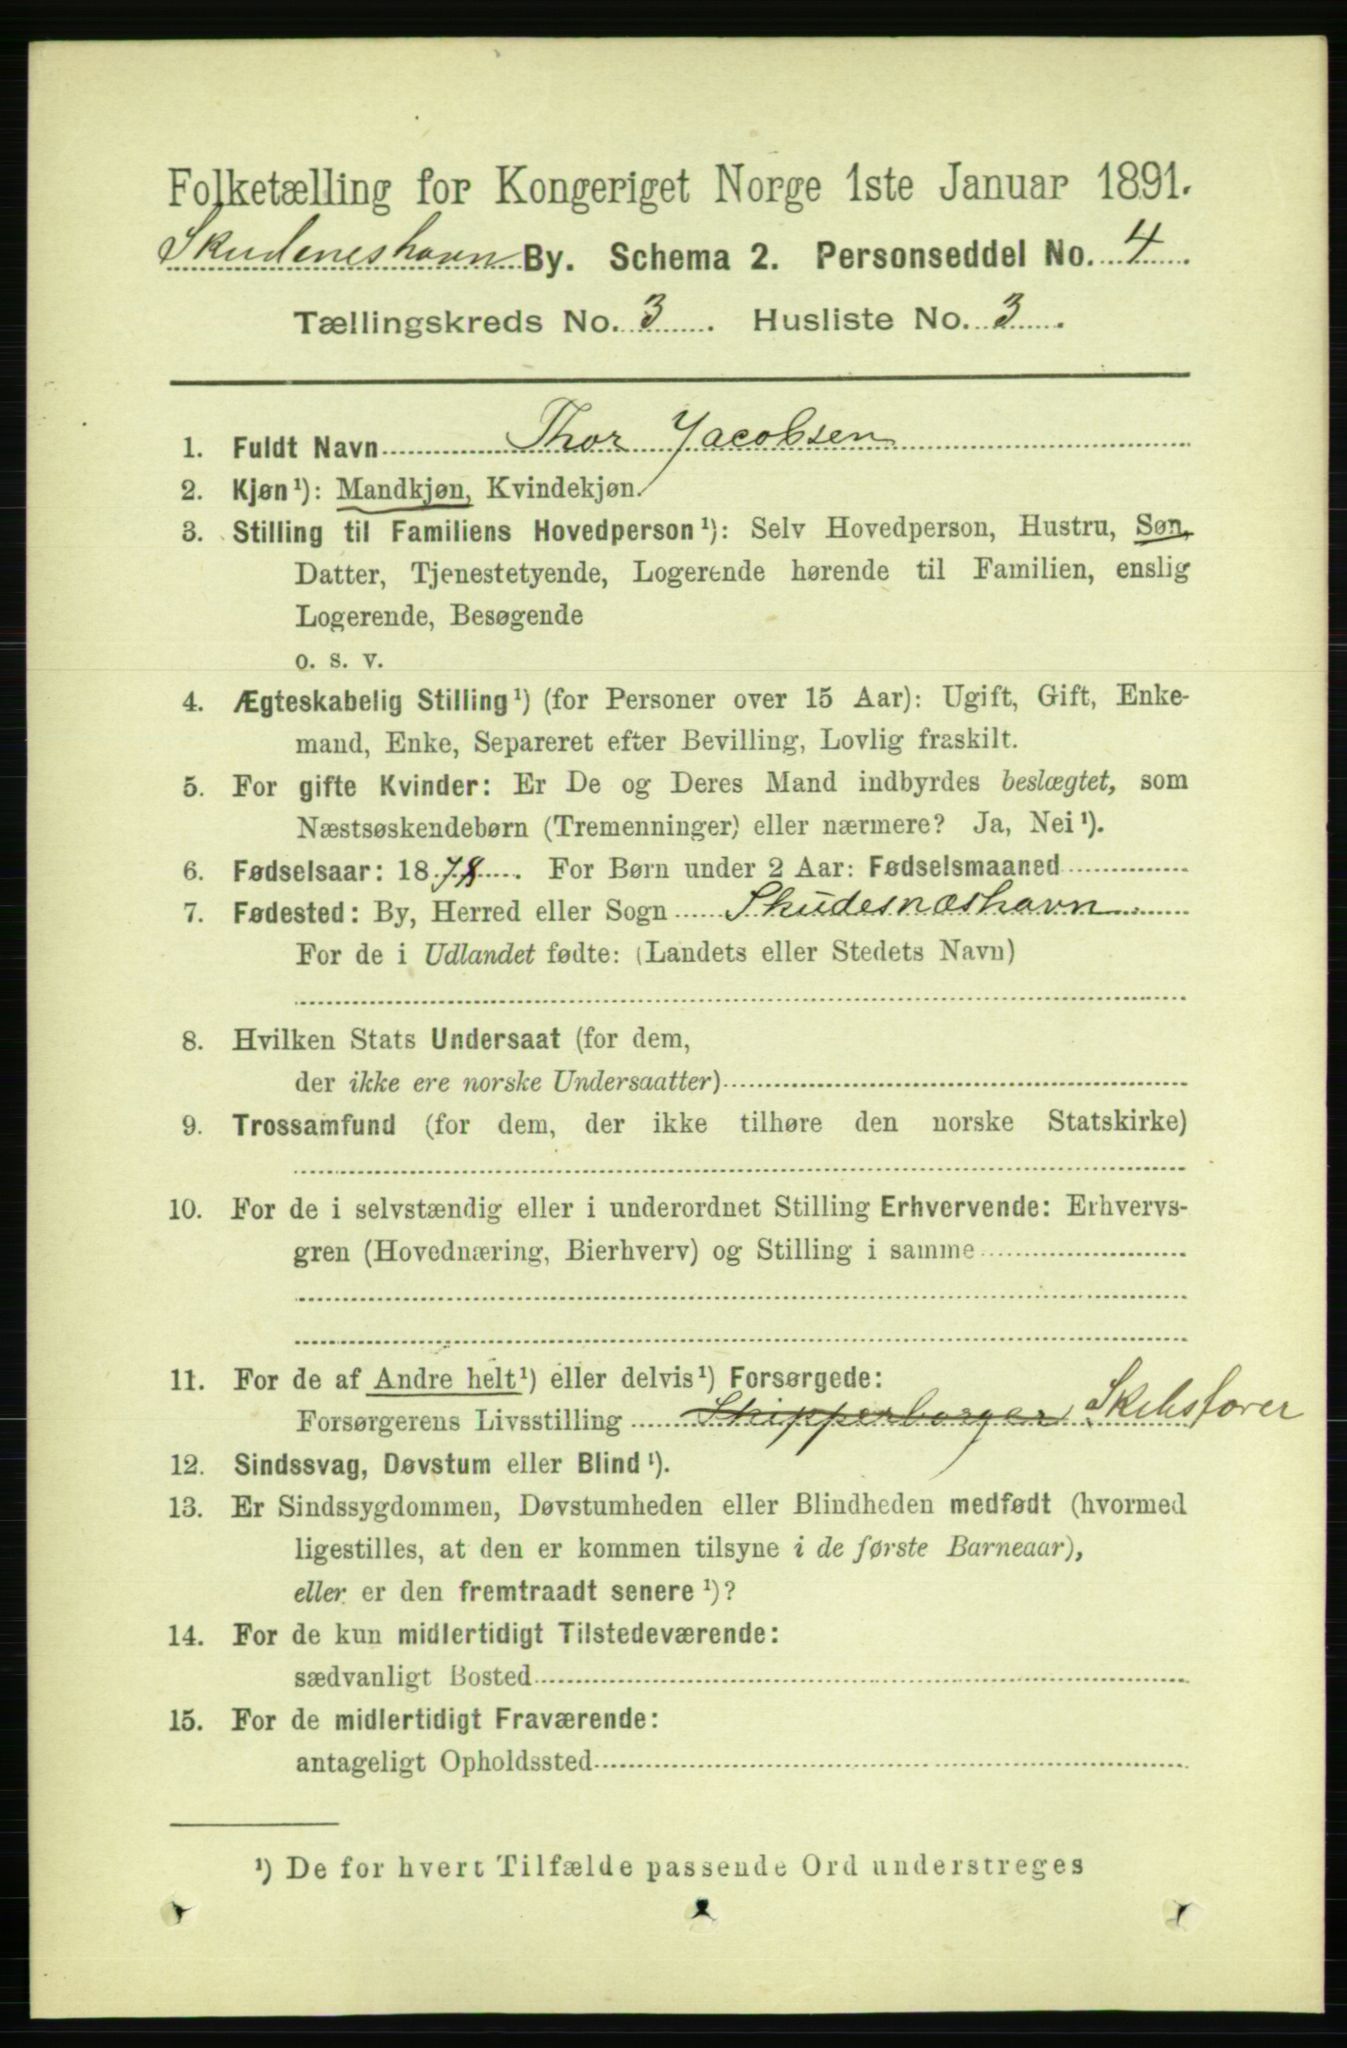 Folketælling for Kongeriget Norge 1ste Januar 1891.
Skudeneshavn By. Schema 2. Personseddel No. 4
Tællingskreds No. 3. Husliste No. 3.
1. Fuldt Navn Thor Jacobsen
2. Kjøn¹): Mandkjøn, Kvindekjøn.
3. Stilling til Familiens Hovedperson¹): Selv Hovedperson, Hustru, Søn,
Datter, Tjenestetyende, Logerende hørende til Familien, enslig
Logerende, Besøgende
o. s. v.
4. Ægteskabelig Stilling¹) (for Personer over 15 Aar): Ugift, Gift, Enke-
mand, Enke, Separeret efter Bevilling, Lovlig fraskilt.
5. For gifte Kvinder: Er De og Deres Mand indbyrdes beslægtet, som
Næstsøskendebørn (Tremenninger) eller nærmere? Ja, Nei¹).
6. Fødselsaar: 1878. For Børn under 2 Aar: Fødselsmaaned
7. Fødested: By, Herred eller Sogn Skudesnæshavn
For de i Udlandet fødte: (Landets eller Stedets Navn)
8. Hvilken Stats Undersaat (for dem,
der ikke ere norske Undersaatter)
9. Trossamfund (for dem, der ikke tilhøre den norske Statskirke)
10. For de i selvstændig eller i underordnet Stilling Erhvervende: Erhvervs-
gren (Hovednæring, Bierhverv) og Stilling i samme
11. For de af Andre helt¹) eller delvis¹) Forsørgede:
Forsørgerens Livsstilling Skipperborger Skibsfører
12. Sindssvag, Døvstum eller Blind¹).
13. Er Sindssygdommen, Døvstumheden eller Blindheden medfødt (hvormed
ligestilles, at den er kommen tilsyne i de første Barneaar),
eller er den fremtraadt senere¹)?
14. For de kun midlertidigt Tilstedeværende:
sædvanligt Bosted
15. For de midlertidigt Fraværende:
antageligt Opholdssted
¹) De for hvert Tilfælde passende Ord understreges